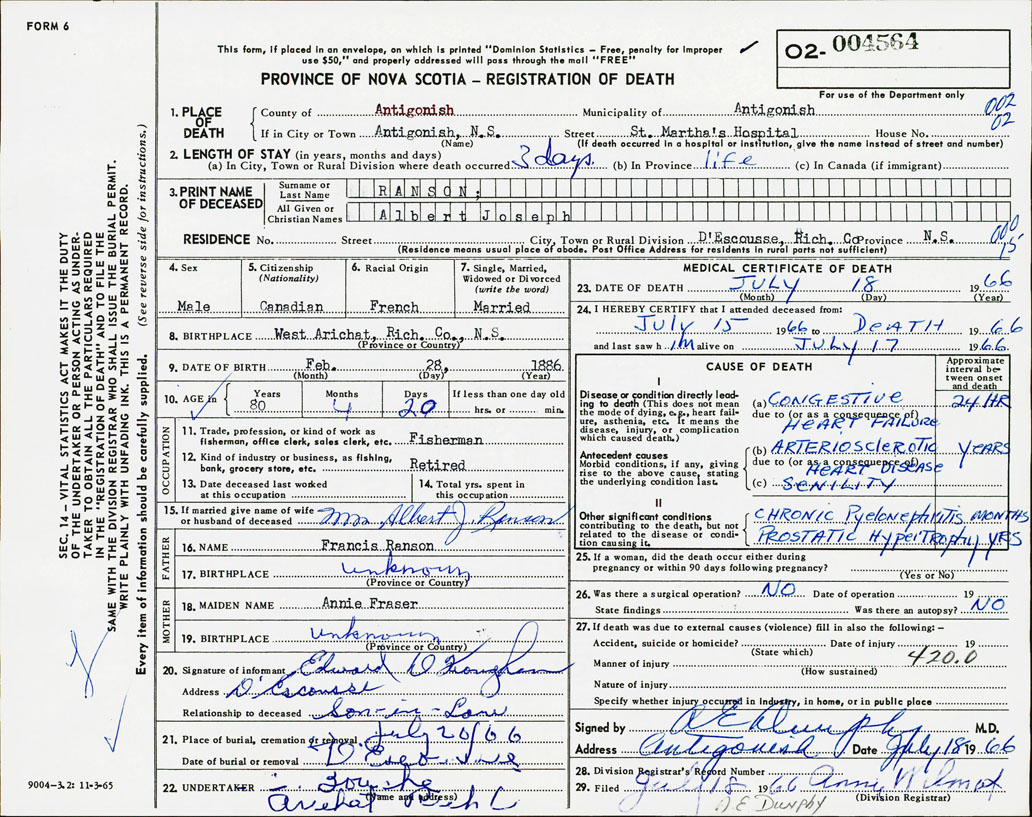 FORM 6
This form, if placed in an envelope, on which is printed "Dominion Statistics – Free, penalty for improper
use $50," and properly addressed will pass through the mail "FREE"
PROVINCE OF NOVA SCOTIA – REGISTRATION OF DEATH
02- 004564
For use of the Department only
1. PLACE OF DEATH County of Antigonish Municipality of Antigonish 002
If in City or Town Antigonish, N.S. Street St. Martha's Hospital House No. 02
(Name) (If death occurred in a hospital or institution, give the name instead of street and number)
2. LENGTH OF STAY (in years, months and days)
(a) In City, Town or Rural Division where death occurred 3 days. (b) In Province life (c) In Canada (if immigrant)
3. PRINT NAME OF DECEASED Surname or Last Name RANSON;
All Given or Christian Names Albert Joseph
RESIDENCE No. Street City, Town or Rural Division D'Escousse, Rich. Co Province N.S. 000
15
(Residence means usual place of abode. Post Office Address for residents in rural parts not sufficient)
4. Sex Male
5. Citizenship (Nationality) Canadian
6. Racial Origin French
7. Single, Married, Widowed or Divorced (write the word) Married
8. BIRTHPLACE West Arichat, Rich. Co., N.S.
(Province or Country)
9. DATE OF BIRTH Feb. 28, 1886
(Month) (Day) (Year)
10. AGE in Years 80 Months 4 Days 20 If less than one day old hrs. or min.
OCCUPATION
11. Trade, profession, or kind of work as
fisherman, office clerk, sales clerk, etc. Fisherman
12. Kind of industry or business, as fishing,
bank, grocery store, etc. Retired
13. Date deceased last worked
at this occupation
14. Total yrs. spent in
this occupation
15. If married give name of wife
or husband of deceased Mrs Albert J. Ranson
FATHER
16. NAME Francis Ranson
17. BIRTHPLACE unknown
(Province or Country)
MOTHER
18. MAIDEN NAME Annie Fraser
19. BIRTHPLACE unknown
(Province or Country)
20. Signature of informant Edward
Address D'Escousse
Relationship to deceased Son-in-Law
21. Place of burial, cremation or removal July 20/66
Date of burial or removal D'Escousse
22. UNDERTAKER
(Name and address) Arichat
MEDICAL CERTIFICATE OF DEATH
23. DATE OF DEATH JULY 18 1966
(Month) (Day) (Year)
24. I HEREBY CERTIFY that I attended deceased from:
July 15 1966 to DEATH 1966
and last saw h im alive on JULY 17 1966.
CAUSE OF DEATH
Approximate interval between onset and death
I
Disease or condition directly leading to death (This does not mean the mode of dying, e.g., heart failure, asthenia, etc. It means the disease, injury, or complication which caused death.)
(a) CONGESTIVE 24 HR
due to (or as a consequence of)
HEART FAILURE
Antecedent causes
Morbid conditions, if any, giving rise to the above cause, stating the underlying condition last.
(b) ARTERIOSCLEROTIC YEARS
due to (or as a consequence of)
HEART DISEASE
(c) SENILITY
II
Other significant conditions
contributing to the death, but not related to the disease or condition causing it.
CHRONIC PyeloNephritis MONTHS
PROSTATIC HyperTrophy YRS
25. If a woman, did the death occur either during
pregnancy or within 90 days following pregnancy?
(Yes or No)
26. Was there a surgical operation? NO Date of operation 19
State findings Was there an autopsy? NO
27. If death was due to external causes (violence) fill in also the following: –
Accident, suicide or homicide? Date of injury 19
(State which) 420.0
Manner of injury
(How sustained)
Nature of injury
Specify whether injury occurred in industry, in home, or in public place
Signed by A E Dunphy M.D.
Address Antigonish Date July 18 1966
28. Division Registrar's Record Number
29. Filed July 18 1966 Annie
(Division Registrar)
A E Dunphy
SEC. 14 – VITAL STATISTICS ACT MAKES IT THE DUTY
OF THE UNDERTAKER OR PERSON ACTING AS UNDER-
TAKER TO OBTAIN ALL THE PARTICULARS REQUIRED
IN THE "REGISTRATION OF DEATH" AND TO FILE THE
SAME WITH THE DIVISION REGISTRAR WHO SHALL ISSUE THE BURIAL PERMIT.
WRITE PLAINLY WITH UNFADING INK. THIS IS A PERMANENT RECORD.
Every item of information should be carefully supplied. (See reverse side for instructions.)
9004-3.2: 11-3-65